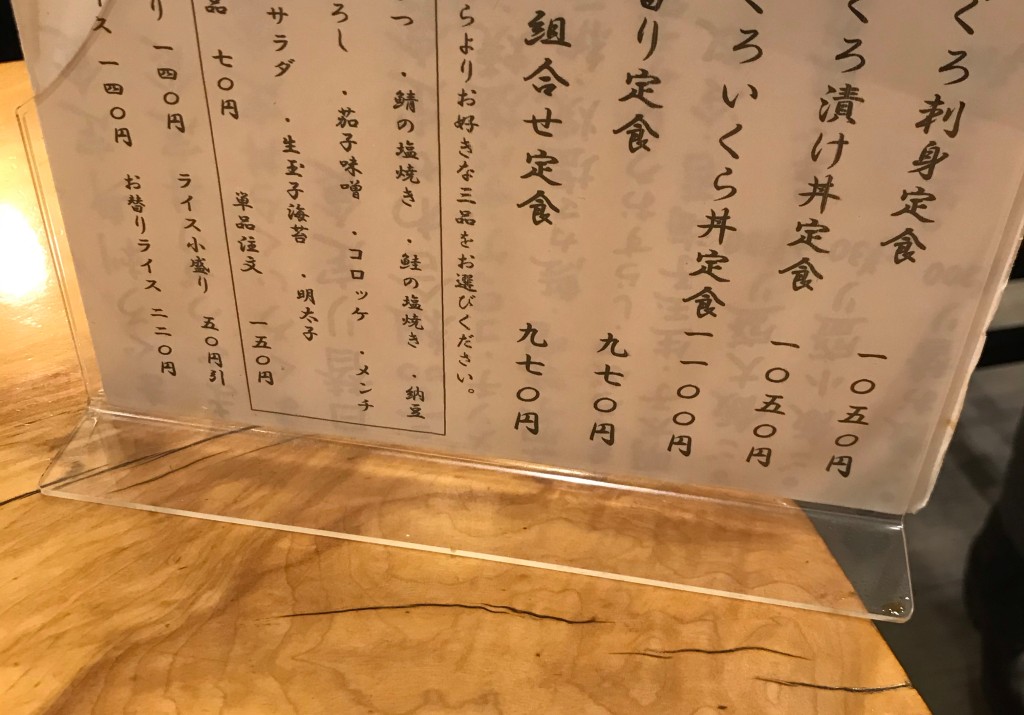 ぐろ刺身定食 一〇五〇円
くろ漬け丼定食 一〇五〇円
くろいくら丼定食 一一〇〇円
替り定食 九七〇円
組合せ定食 九七〇円
らよりお好きな三品をお選びください。
つ ・鯖の塩焼き ・鮭の塩焼き ・納豆
ろし ・茄子味噌 ・コロッケ ・メンチ
サラダ ・生玉子海苔 ・明太子
単品注文 一五〇円
品 七〇円
り 一四〇円 ライス小盛り 五〇円引
ース 一四〇円 お替りライス 二二〇円